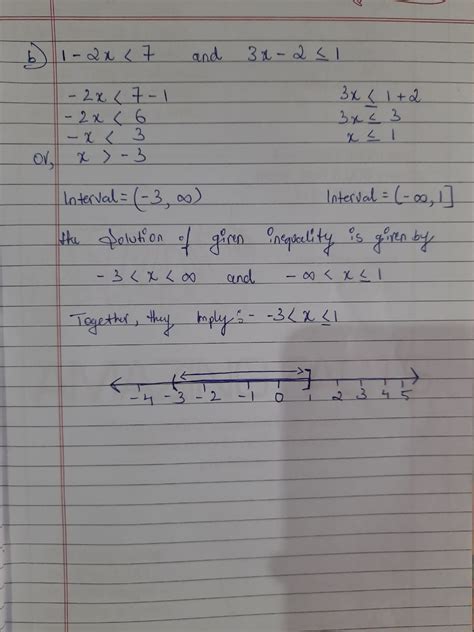 b) 1 - 2x < 7 and 3x - 2 ≤ 1
- 2x < 7 - 1 3x ≤ 1 + 2
- 2x < 6 3x ≤ 3
- x < 3 x ≤ 1
or, x > - 3
Interval = (-3, ∞) Interval = (-∞, 1]
the solution of given inequality is given by
- 3 < x < ∞ and - ∞ < x ≤ 1
Together, they imply :- -3 < x ≤ 1
-4 -3 -2 -1 0 1 2 3 4 5